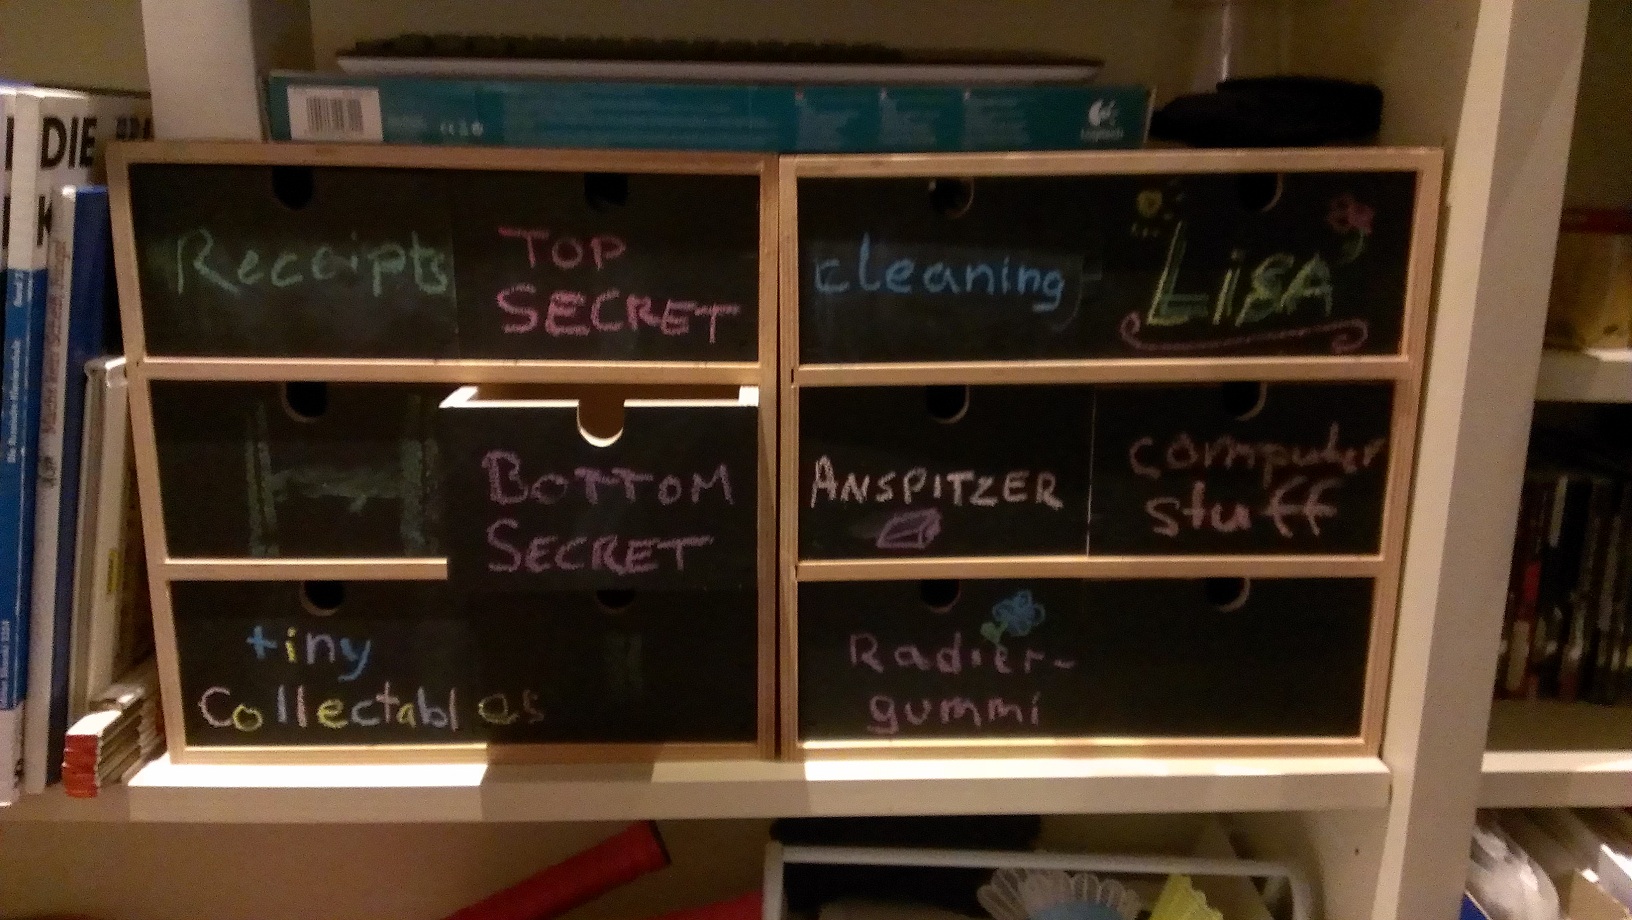 DIE
Receipts
TOP
SECRET
cleaning
LiSA
H
BOTTOM
SECRET
ANSPITZER
computer
stuff
tiny
Collectables
Radier-
gummi
Logitech